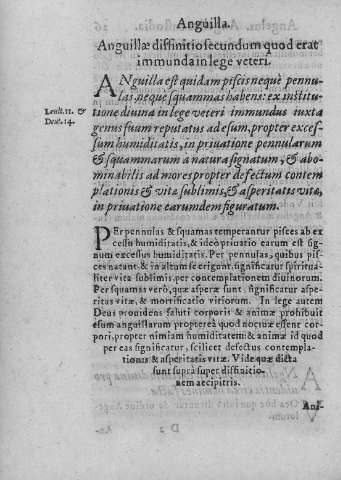 Anguilla.
Anguillæ diffinitio secundum quod erat
immunda in lege veteri.
ANguilla est quidam piscis neque pennu-
las, neque squammas habens: ex institu-
Leuit. 11. &
tione diuina in lege veteri immundus iuxta
Deut. 14.
genus suum reputatus ad esum, propter exces-
sum humiditatis, in priuatione pennularum
& squammarum a natura signatum, & abo-
minabilis ad mores propter defectum contem
plationis & vitæ sublimis, & asperitatis vitæ,
in priuatione earumdem figuratum.
PEr pennulas & squamas temperantur pisces ab ex
cessu humiditatis, & ideo priuatio earum est sig-
num excessus humiditatis. Per pennulas, quibus pis-
ces natant, & in altum se erigunt, significatur spiritua-
liter vita sublimis, per contemplationem diuinorum.
Per squamas verò, quæ asperæ sunt, significatur asperi-
tas vitæ, & mortificatio vitiorum. In lege autem
Deus prouidens saluti corporis & animæ prohibuit
esum anguillarum propterea quod nociuæ essent cor-
pori, propter nimiam humiditatem: & animæ id quod
per eas significatur, scilicet defectus contempla-
tionis & asperitatis vitæ. Vide quæ dicta
sunt supra super diffinitio-
nem accipitris.
Ani-
D 2